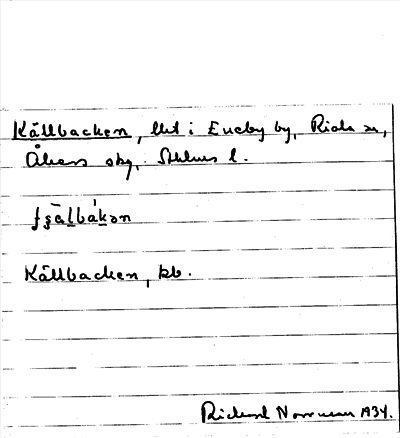 Källbacken, lht i Eneby by, Riala sn,
Åkers skg, Sthlms l.
fʂälbàkən
Källbacken, kb.
Richard Norrman 1934.